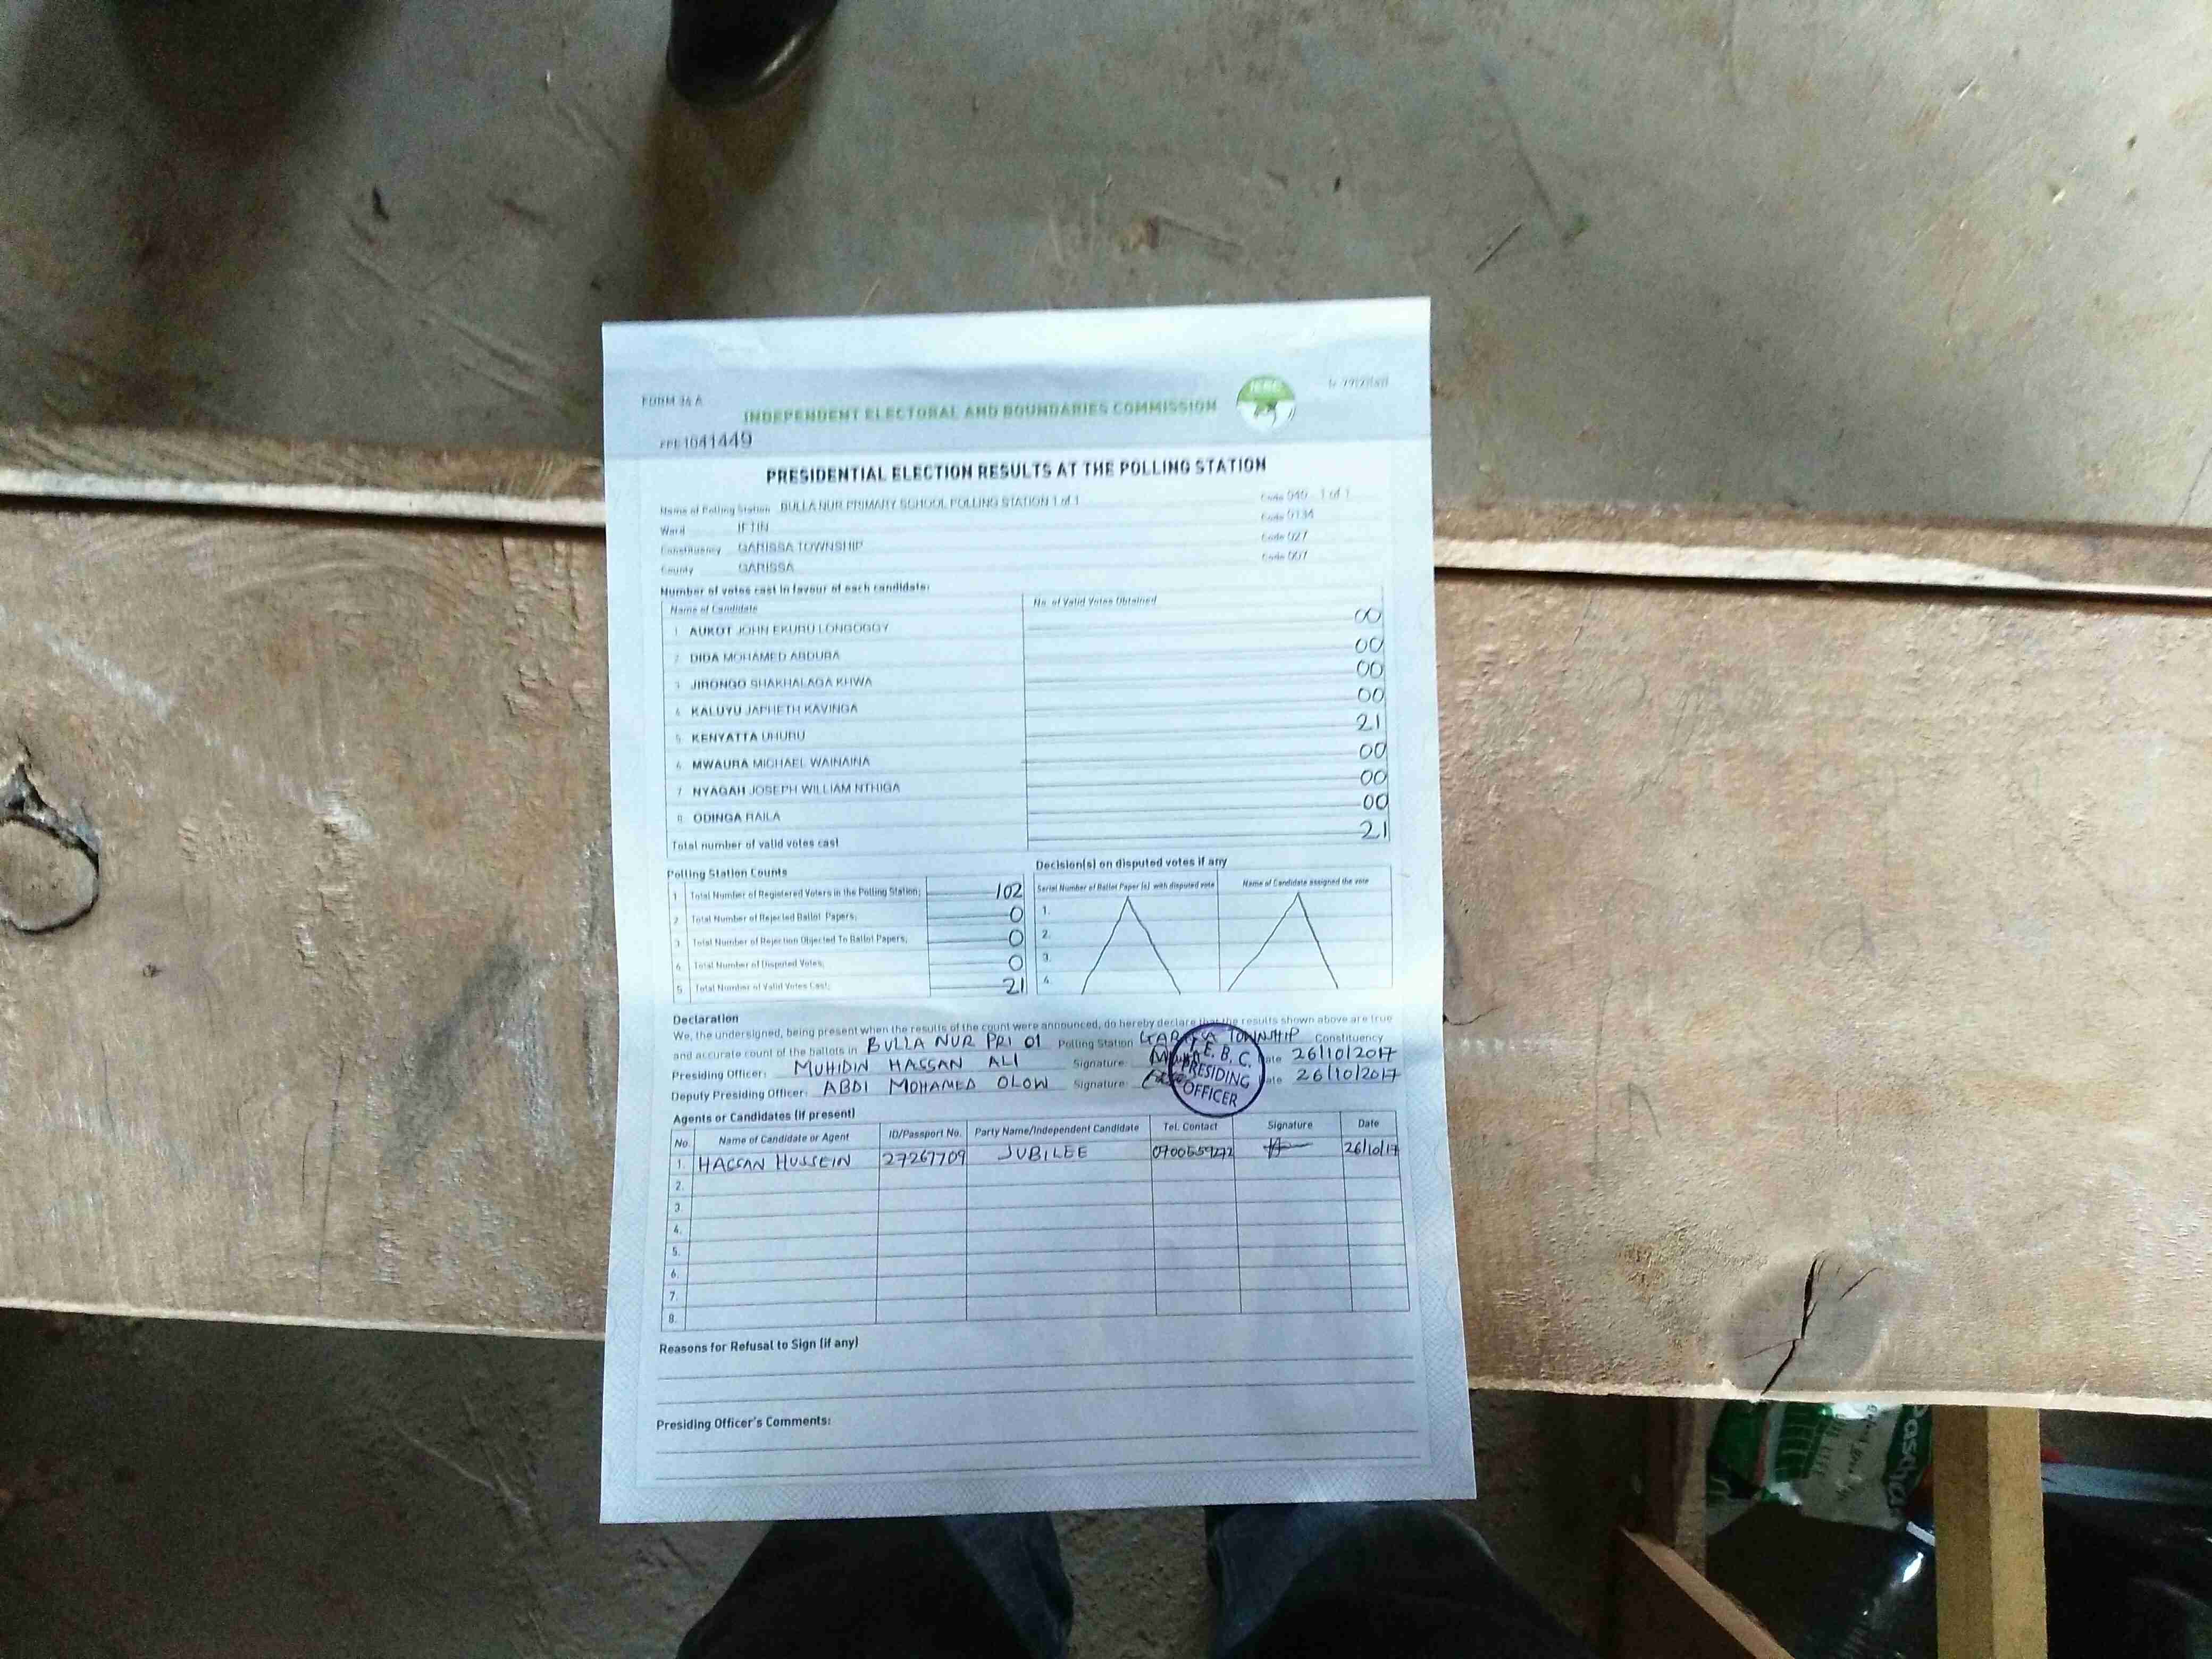 FORM 34 A
INDEPENDENT ELECTORAL AND BOUNDARIES COMMISSION
IEBC
1041449
PRESIDENTIAL ELECTION RESULTS AT THE POLLING STATION
Name of Polling Station BULLA NUR PRIMARY SCHOOL POLLING STATION 1 of 1 Code 040 1 of 1
Ward IFTIN Code 0134
Constituency GARISSA TOWNSHIP Code 027
County GARISSA Code 007
Number of votes cast in favour of each candidate:
Name of Candidate No. of Valid Votes Obtained
1. AUKOT JOHN EKURU LONGOGGY 00
2. DIDA MOHAMED ABDUBA 00
3. JIRONGO SHAKHALAGA KHWA 00
4. KALUYU JAPHETH KAVINGA 00
5. KENYATTA UHURU 21
6. MWAURA MICHAEL WAINAINA 00
7. NYAGAH JOSEPH WILLIAM NTHIGA 00
8. ODINGA RAILA 00
Total number of valid votes cast 21
Polling Station Counts
1. Total Number of Registered Voters in the Polling Station; 102
2. Total Number of Rejected Ballot Papers; 0
3. Total Number of Rejection Objected To Ballot Papers; 0
4. Total Number of Disputed Votes; 0
5. Total Number of Valid Votes Cast; 21
Decision(s) on disputed votes if any
Serial Number of Ballot Paper (s) with disputed vote Name of Candidate assigned the vote
1.
2.
3.
4.
Declaration
We, the undersigned, being present when the results of the count were announced, do hereby declare that the results shown above are true
and accurate count of the ballots in BULLA NUR PRI 01 Polling Station GARISSA TOWNSHIP Constituency
Presiding Officer: MUHIDIN HASSAN ALI Signature: Date 26/10/2017
Deputy Presiding Officer: ABDI MOHAMED OLOW Signature: Date 26/10/2017
I. E. B. C.
PRESIDING
OFFICER
Agents or Candidates (if present)
No. Name of Candidate or Agent ID/Passport No. Party Name/Independent Candidate Tel. Contact Signature Date
1. HASSAN HUSSEIN 27267709 JUBILEE 0700559272 26/10/17
2.
3.
4.
5.
6.
7.
8.
Reasons for Refusal to Sign (if any)
Presiding Officer's Comments: